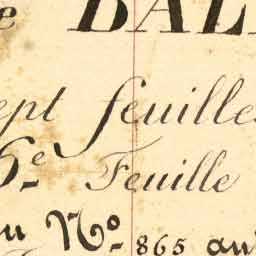 e BAL
ept feuilles
6e Feuille
u No. 865 au